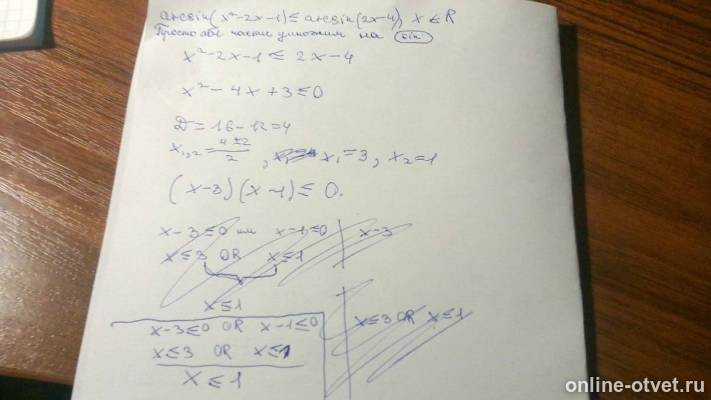 arcsin(x²-2x-1) ≤ arcsin(2x-4), x ∈ R
Просто обе части умножим на sin
x²-2x-1 ≤ 2x-4
x²-4x+3 ≤ 0
D = 16-12=4
x₁,₂ = 4±2/2 , x₁=3, x₂=1
(x-3)(x-1) ≤ 0.
x-3≤0 или x-1≤0 x-3
x≤3 OR x≤1
x≤1
x-3≤0 OR x-1≤0 x≤3 OR x≤1
x≤3 OR x≤1
x≤1
online-otvet.ru